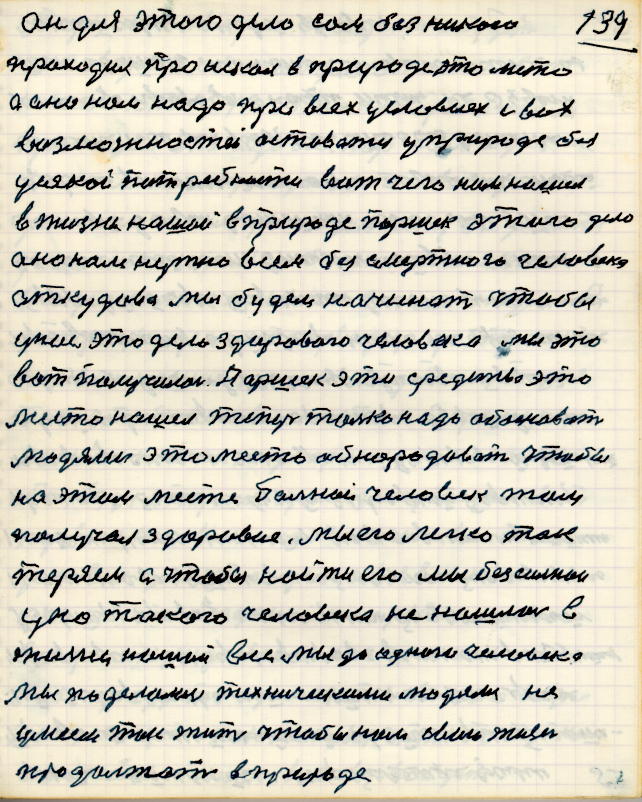 он для этого дело сам без никого 139
проходил про искал в природе это место
а оно нам надо при всех условиях и всех
возможностей оставатся у природе без
усякой потребности вот чего нам нашел
в жизни нашой в природе Паршек этого дело
оно нам нужно всем без смертного человека
откудова мы будем начинат чтобы
у нас это дело здорового человека мы это
вот получили. Паршек эти средства это
место нашел тепер толко надо
людями это место обнародоват чтобы
на этом месте болной человек там
получал здоровие. мы его легко так
теряем а чтобы найти его мы безсилнои
у нас такого человека не нашлос в
жизни нашой все мы до одного человека
мы поделалис техническими людями не
умеем так жит чтобы нам свою жизн
продолжат в природе